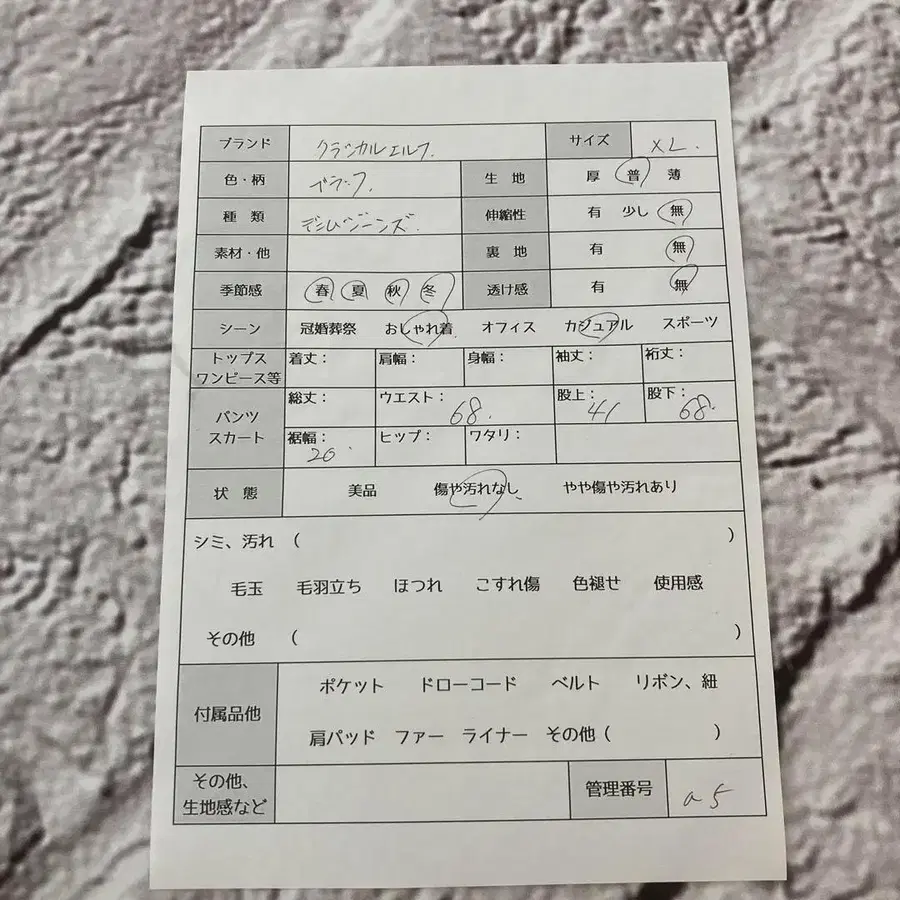 ブランド クラシカルエルフ. サイズ XL.
色・柄 ブラック. 生地 厚 普 薄
種類 デニムジーンズ. 伸縮性 有 少し 無
素材・他 裏地 有 無
季節感 春 夏 秋 冬 透け感 有 無
シーン 冠婚葬祭 おしゃれ着 オフィス カジュアル スポーツ
トップス ワンピース等 着丈： 肩幅： 身幅： 袖丈： 裄丈：
パンツ スカート 総丈： ウエスト： 68. 股上： 41 股下： 68.
裾幅： 20. ヒップ： ワタリ：
状態 美品 傷や汚れなし やや傷や汚れあり
シミ、汚れ ( )
毛玉 毛羽立ち ほつれ こすれ傷 色褪せ 使用感
その他 ( )
付属品他 ポケット ドローコード ベルト リボン、紐
肩パッド ファー ライナー その他 ( )
その他、生地感など 管理番号 a5